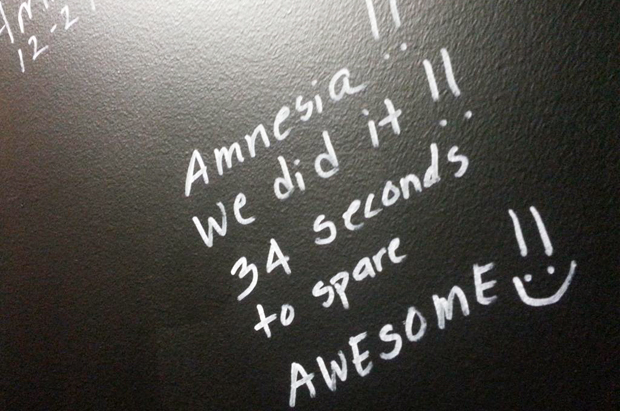 12-2
Amnesia !!
We did it !!
34 seconds
to spare
AWESOME !!